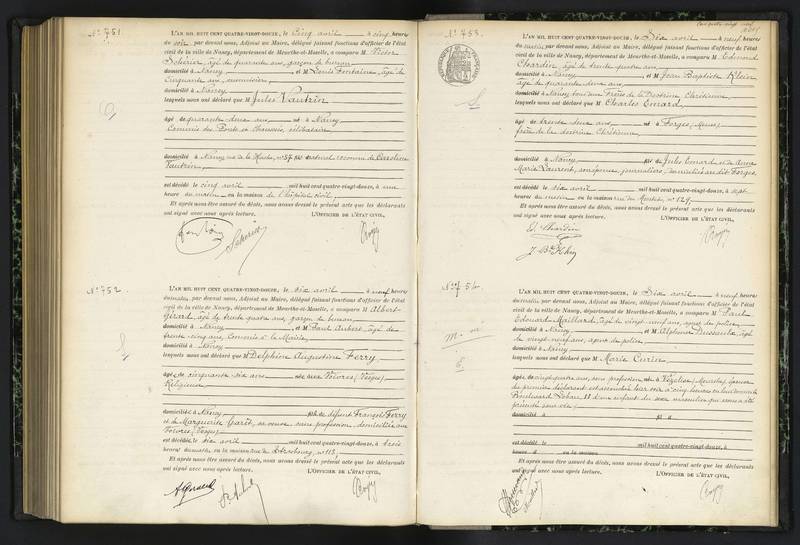 N° 751.
L'AN MIL HUIT CENT QUATRE-VINGT-DOUZE, le cinq avril à cinq heures
du soir, par devant nous, Adjoint au Maire, délégué faisant fonctions d'officier de l'état
civil de la ville de Nancy, département de Meurthe-et-Moselle, a comparu M
âgé de quarante ans, garçon de bureau,
domicilié à Nancy et M Louis Fontaine, âgé de
cinquante ans,
domicilié à Nancy
lesquels nous ont déclaré que M Jules Vautrin
âgé de quarante deux ans, né à Nancy
Commis des Ponts et Chaussées, célibataire
domicilié à Nancy, rue de la Hache, n° 57 fils naturel reconnu de Caroline
Vautrin,
est décédé le cinq avril mil huit cent quatre-vingt-douze, à une
heure du matin en la maison de l'hôpital civil,
Et après nous être assuré du décès, nous avons dressé le présent acte que les déclarants
ont signé avec nous après lecture. L'OFFICIER DE L'ÉTAT CIVIL,
N° 752.
L'AN MIL HUIT CENT QUATRE-VINGT-DOUZE, le six avril à neuf heures
du matin, par devant nous, Adjoint au Maire, délégué faisant fonctions d'officier de l'état
civil de la ville de Nancy, département de Meurthe-et-Moselle, a comparu M Albert
Girard, âgé de trente quatre ans, garçon de bureau,
domicilié à Nancy et M Paul Aubert, âgé de
trente cinq ans, Commis à la Mairie,
domicilié à Nancy
lesquels nous ont déclaré que M Delphine Augustine Ferry
âgée de cinquante six ans née aux Voivres, (Vosges)
Religieuse
domiciliée à Nancy fille de défunt François Ferry
et de Marguerite sa veuve, sans profession, domiciliée aux
Voivres, (Vosges)
est décédée le six avril mil huit cent quatre-vingt-douze, à trois
heures du matin en la maison rue de Strasbourg, n° 113,
Et après nous être assuré du décès, nous avons dressé le présent acte que les déclarants
ont signé avec nous après lecture. L'OFFICIER DE L'ÉTAT CIVIL,
A Girard
N° 753.
L'AN MIL HUIT CENT QUATRE-VINGT-DOUZE, le six avril à neuf heures
du matin, par devant nous, Adjoint au Maire, délégué faisant fonctions d'officier de l'état
civil de la ville de Nancy, département de Meurthe-et-Moselle, a comparu M Edmond
Chardin, âgé de trente quatre ans,
domicilié à Nancy et M Jean Baptiste Klein
âgé de quarante deux ans,
domicilié à Nancy tous deux Frères de la Doctrine Chrétienne,
lesquels nous ont déclaré que M Charles Emard,
âgé de trente deux ans, né à Forges, (Meuse)
frère de la doctrine Chrétienne,
domicilié à Nancy fils de Jules Emard et de Anne
Marie Laurent, son épouse, journaliers, domiciliés au dit Forges,
est décédé le six avril mil huit cent quatre-vingt-douze, à sept
heures du matin en la maison rue de n° 129,
Et après nous être assuré du décès, nous avons dressé le présent acte que les déclarants
ont signé avec nous après lecture. L'OFFICIER DE L'ÉTAT CIVIL,
E. Chardin
N° 754.
L'AN MIL HUIT CENT QUATRE-VINGT-DOUZE, le Six avril à neuf heures
du matin, par devant nous, Adjoint au Maire, délégué faisant fonctions d'officier de l'état
civil de la ville de Nancy, département de Meurthe-et-Moselle, a comparu M Paul
Edouard Maillard, âgé de vingt neuf ans, agent de police,
domicilié à Nancy et M Alphonse âgé
de vingt neuf ans, agent de police,
domicilié à Nancy
lesquels nous ont déclaré que M Marie Curin
âgée de vingt quatre ans, sans profession, née à Vézelise, épouse
du premier déclarant est accouchée hier soir à cinq heures en leur domicile
Boulevard Lobau, 11 d'un enfant du sexe masculin qui nous a été
présenté sans vie,
domicilié à
est décédé le mil huit cent quatre-vingt-douze, à
heure d en la maison
Et après nous être assuré du décès, nous avons dressé le présent acte que les déclarants
ont signé avec nous après lecture. L'OFFICIER DE L'ÉTAT CIVIL,